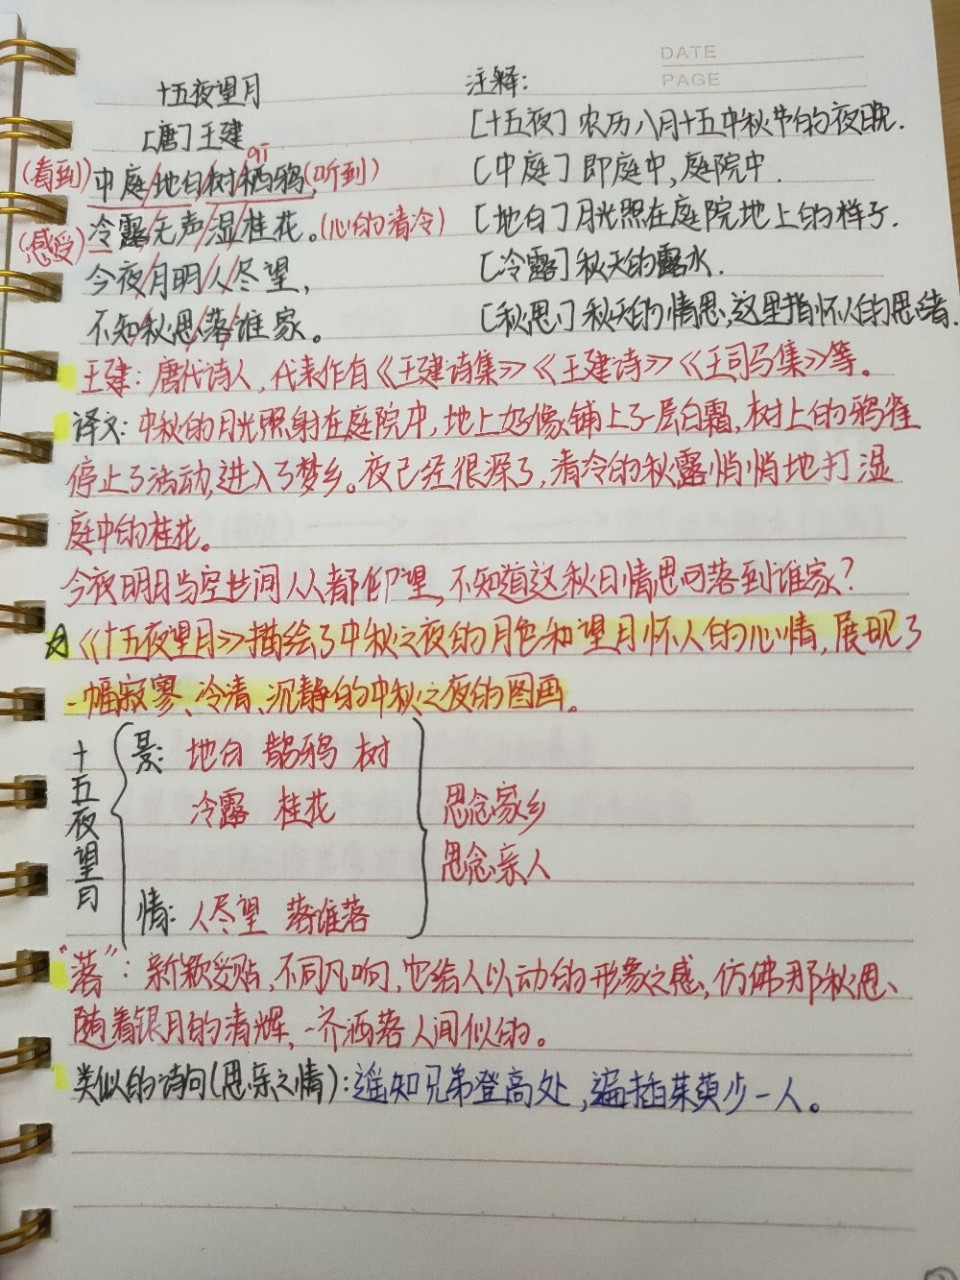 DATE
PAGE
十五夜望月
[唐]王建
(看到)中庭/地白/树/栖鸦,(听到)
(感受)冷露/无声/湿/桂花。(心的清冷)
今夜/月明/人/尽望,
不知/秋思/落/谁家。
注释:
[十五夜]农历八月十五中秋节的夜晚.
[中庭]即庭中,庭院中.
[地白]月光照在庭院地上的样子.
[冷露]秋天的露水.
[秋思]秋天的情思,这里指怀人的思绪.
王建:唐代诗人,代表作有《王建诗集》《王建诗》《王司马集》等。
译文:中秋的月光照射在庭院中,地上好像铺上了层白霜,树上的鸦雀
停止了活动,进入了梦乡。夜已经很深了,清冷的秋露悄悄地打湿
庭中的桂花。
今夜明月当空世间人人都仰望,不知道这秋日情思可落到谁家?
☆《十五夜望月》描绘了中秋之夜的月色和望月怀人的心情,展现了
一幅寂寥、冷清、沉静的中秋之夜的图画。
十五夜望月
景:地白 鹊鸦 树
冷露 桂花
情:人尽望 落谁落
思念家乡
思念亲人
"落":新颖妥贴,不同凡响,也给人以动的形象之感,仿佛那秋思、
随着银月的清辉,一齐洒落人间似的。
类似的诗句(思亲之情):遥知兄弟登高处,遍插茱萸少一人。